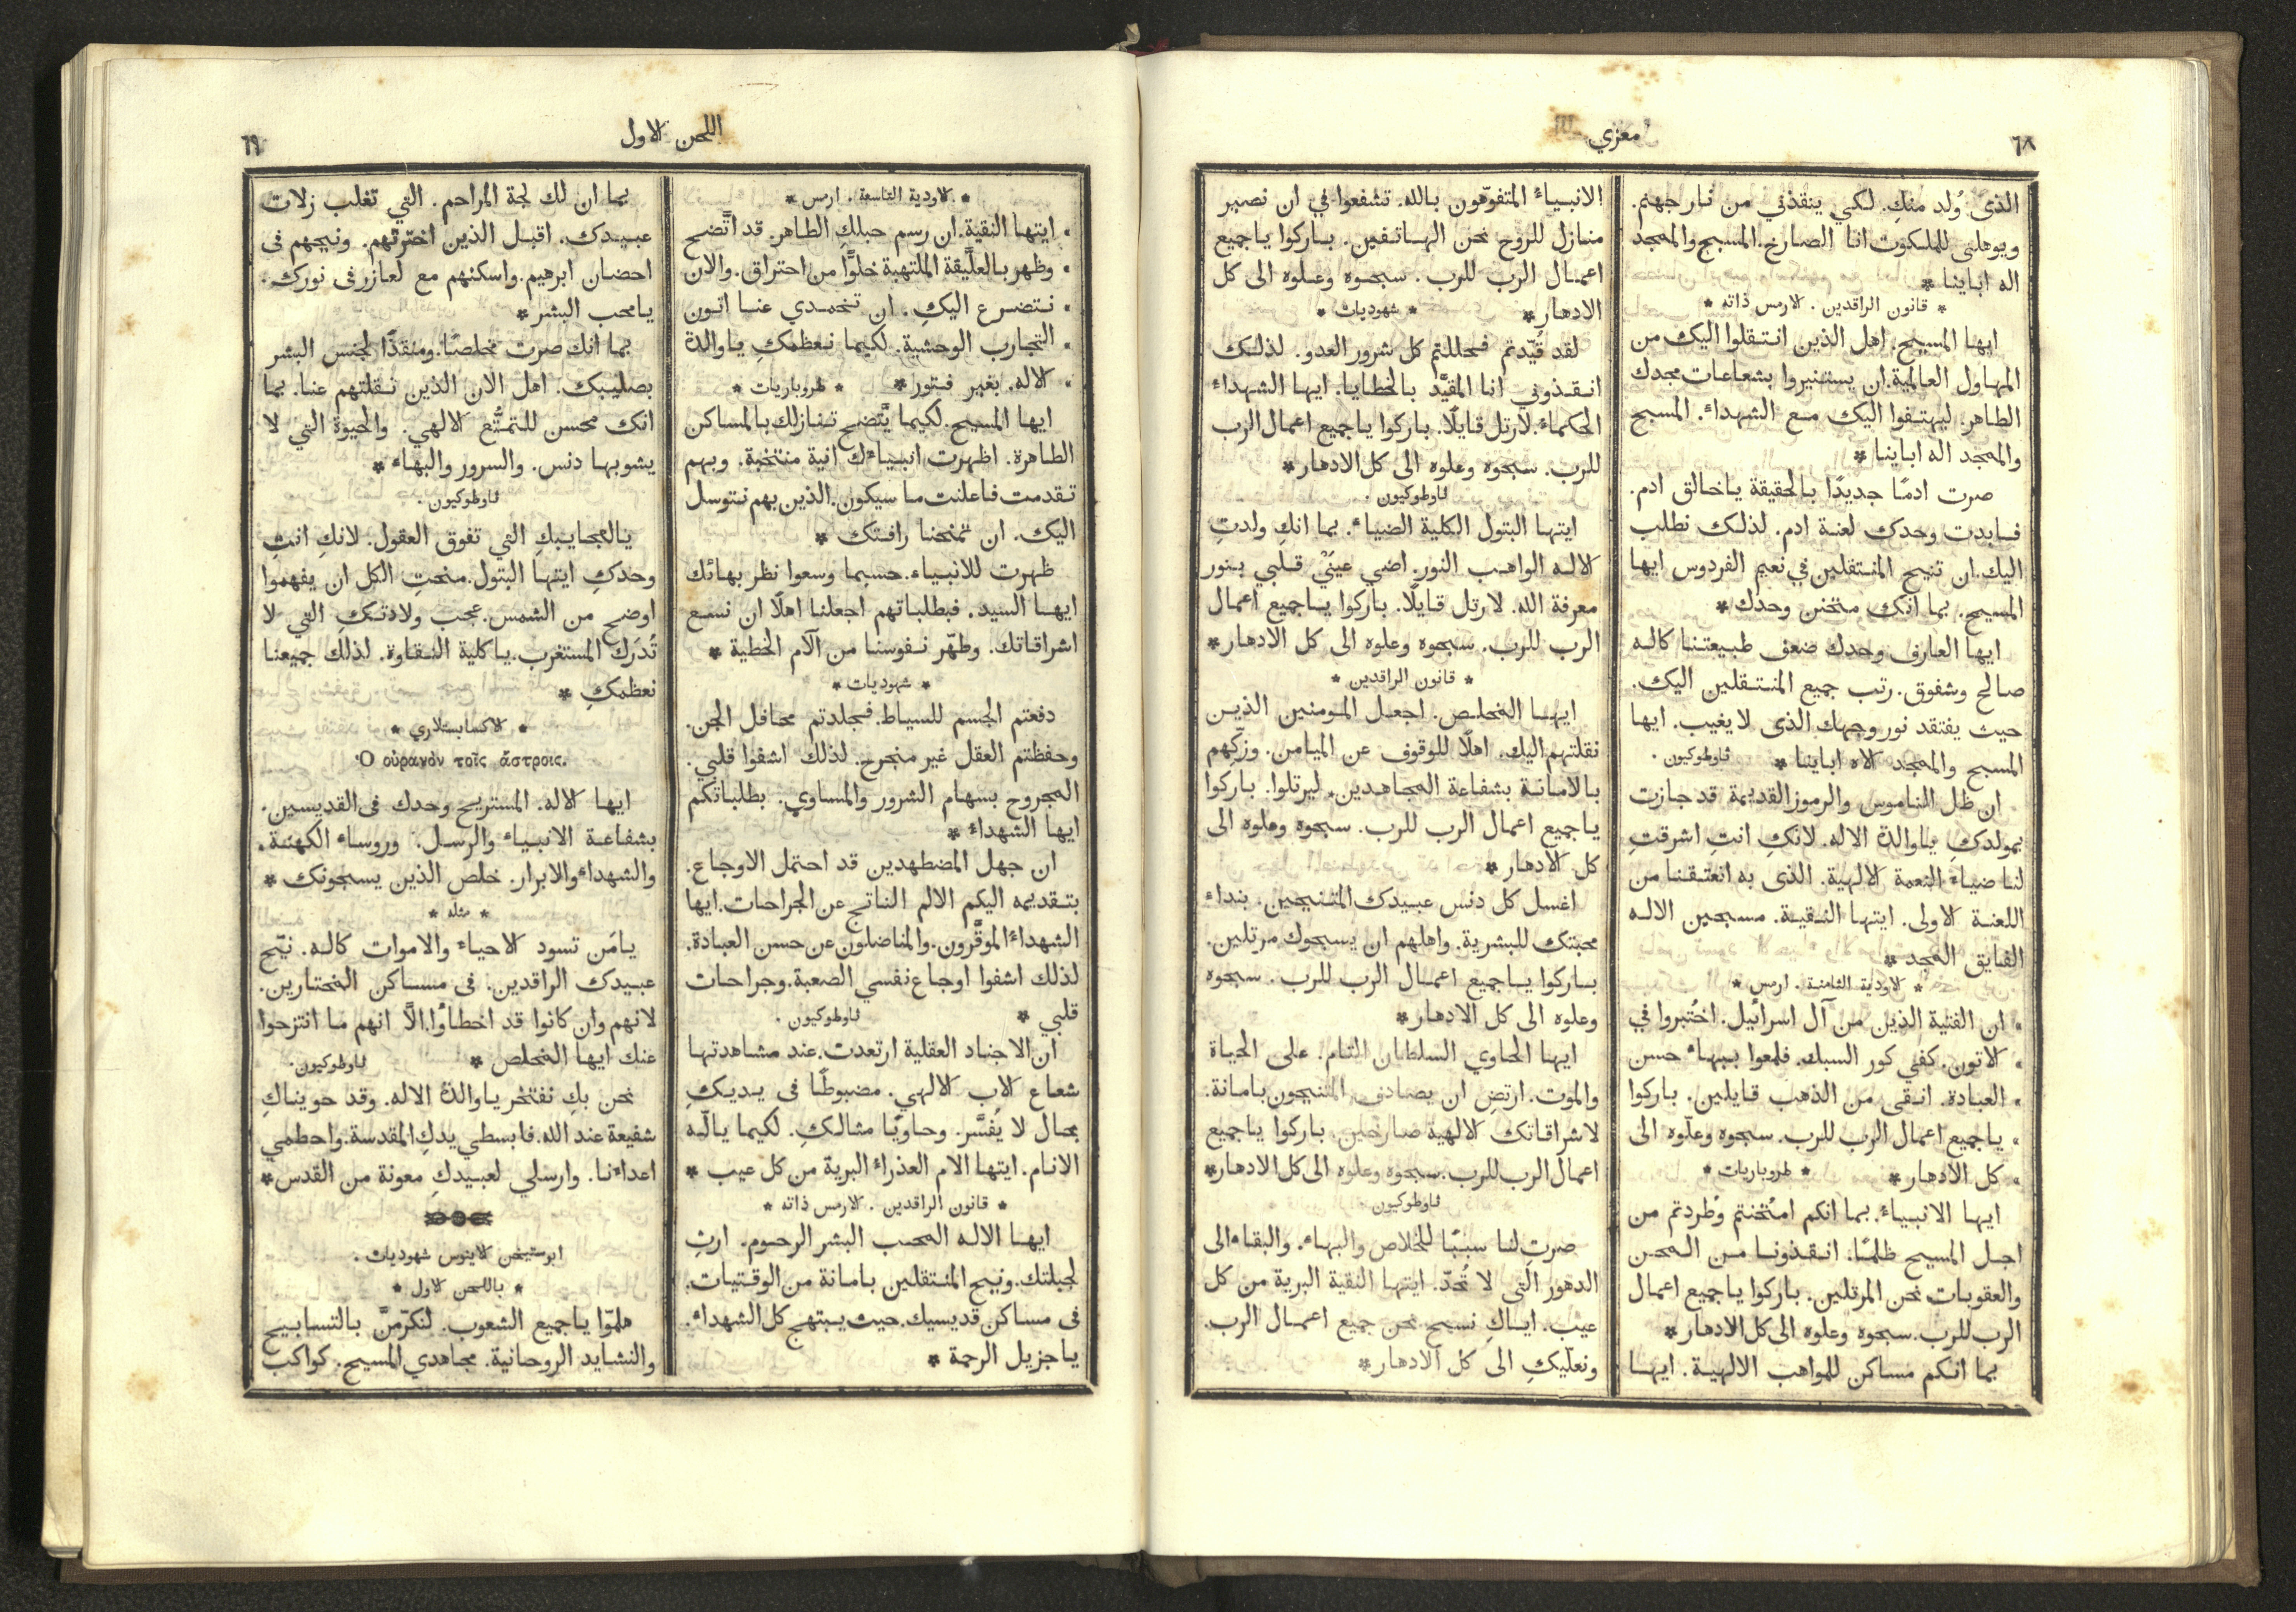 ٦٨
معزي
الذى وُلد منكِ. لكي ينقذني من نار جهنم.
ويوهلنى للملكوت انا الصارخ. المسبح والممجد
اله اباينا *
* قانون الراقدين . لارمس ذاته *
ايها المسيح. اهل الذين انتقلوا اليك من
المهاول العالمية. ان يستنيروا بشعاعات مجدك
الطاهر. ليهتفوا اليك مع الشهداء. المسبح
والممجد اله اباينا *
صرت ادمًا جديدًا بالحقيقة ياخالق ادم.
فابدت وحدك لعنة ادم. لذلك نطلب
اليك. ان تنيح المنتقلين في نعيم الفردوس ايها
المسيح. بما انك متحنن وحدك *
ايها العارف وحدك ضعف طبيعتنا كاله
صالح وشفوق. رتب جميع المنتقلين اليك.
حيث يفتقد نور وجهك الذى لا يغيب. ايها
المسبح والممجد لاه اباينا * ثاوطوكيون .
ان ظل الناموس والرموز القديمة قد جازت
بمولدكِ ياوالدة الاله. لانكِ انتِ اشرقتِ
لنا ضياء النعمة لالهية. الذى به انعتقنا من
اللعنة لاولى. ايتها النقية. مسبحين الاله
الفايق المجد *
* لاودية الثامنة . ارمس *
• ان الفتية الذين من آل اسرائيل. اختُبروا في
• لاتون. كفي كور السبك. فلمعوا ببهاء حسن
• العبادة. انقى من الذهب قايلين. باركوا
• ياجميع اعمال الرب للرب. سبحوه وعلّوه الى
• كل الادهار * * طروباريات *
ايها الانبياء. بما انكم امتُحنتم وطُردتم من
اجل المسيح ظلمًا. انقذونا من المحن
والعقوبات نحن المرتلين. باركوا ياجميع اعمال
الرب للرب. سبحوه وعلوه الى كل الادهار *
بما انكم مساكن للمواهب الالهية. ايها
الانبياء المتفوّهون بالله. تشفعوا في ان نصير
منازل للروح نحن الهاتفين. باركوا ياجميع
اعمال الرب للرب. سبحوه وعلوه الى كل
الادهار * * شهوديات *
لقد قُيّدتم فحللتم كل شرور العدو. لذلك
انقذوني انا المقيَّد بالخطايا. ايها الشهداء
الحكماء. لارتل قايلًا. باركوا ياجميع اعمال الرب
للرب. سبحوه وعلوه الى كل الادهار *
ثاوطوكيون .
ايتها البتول الكلية الضياء. بما انكِ ولدتِ
لاله الواهب النور. اضي عينَيْ قلبي بنور
معرفة الله. لارتل قايلًا. باركوا ياجميع اعمال
الرب للرب. سبحوه وعلوه الى كل الادهار *
* قانون الراقدين *
ايها المخلص. اجعل المومنين الذين
نقلتهم اليك. اهلًا للوقوف عن الميامن. وزكّهم
بالامانة بشفاعة المجاهدين. ليرتلوا. باركوا
ياجميع اعمال الرب للرب. سبحوه وعلوه الى
كل لادهار *
اغسل كل دنس عبيدك المتنيحين. بنداء
محبتك للبشرية. واهلهم ان يسبحوك مرتلين.
باركوا ياجميع اعمال الرب للرب. سبحوه
وعلوه الى كل الادهار *
ايها الحاوي السلطان التام. على الحياة
والموت. ارتضِ ان يصادف المتنيحون بامانة.
لاشراقاتك لالهية صارخين. باركوا ياجميع
اعمال الرب للرب. سبحوه وعلوه الى كل الادهار *
ثاوطوكيون .
صرتِ لنا سببًا للخلاص والبهاء. والبقاء الى
الدهور التى لا تُحدّ. ايتها النقية البرية من كل
عيب. اياكِ نسبح نحن جميع اعمال الرب.
ونعلّيكِ الى كل الادهار *
اللحن لاول
٦٩
* لاودية التاسعة . ارمس *
• ايتها النقية. ان رسم حبلكِ الطاهر. قد اتَّضح
• وظهر بالعلَّيقة الملتهبة خلوًّا من احتراق. والان
• نتضرع اليكِ. ان تخمدي عنا اتون
• التجارب الوحشية. لكيما نعظمكِ ياوالدة
• لاله. بغير فتور * * طروباريات *
ايها المسيح. لكيما يتَّضح تنازلك بالمساكن
الطاهرة. اظهرت انبياءك انية منتخبة. وبهم
تقدمت فاعلنت ما سيكون. الذين بهم نتوسل
اليك. ان تمنحنا رافتك *
ظهرت للانبياء. حسبما وسعوا نظر بهائك
ايها السيد. فبطلباتهم اجعلنا اهلًا ان نسع
اشراقاتك. وطهّر نفوسنا من آلام الخطية *
* شهوديات *
دفعتم الجسم للسياط. فجلدتم محافل الجن.
وحفظتم العقل غير منجرح. لذلك اشفوا قلبي.
المجروح بسهام الشرور والمساوي. بطلباتكم
ايها الشهداء *
ان جهل المضطهدين قد احتمل الاوجاع.
بتقديمه اليكم الالم الناتج عن الجراحات. ايها
الشهداء الموقَّرون. والمناضلون عن حسن العبادة.
لذلك اشفوا اوجاع نفسي الصعبة. وجراحات
قلبي * ثاوطوكيون .
ان الاجناد العقلية ارتعدت. عند مشاهدتها
شعاع لاب لالهي. مضبوطًا فى يديكِ
بحال لا يُفسَّر. وحاويًا مثالكِ. لكيما يالّه
الانام. ايتها الام العذراء البرية من كل عيب *
* قانون الراقدين . لارمس ذاته *
ايها الاله المحب البشر الرحوم. ارثِ
لجبلتك. ونيح المنتقلين بامانة من الوقتيات.
فى مساكن قديسيك. حيث يبتهج كل الشهداء.
ياجزيل الرحمة *
بما ان لك لجة المراحم. التي تغلب زلات
عبيدك. اقبل الذين اخترتهم. ونيحهم فى
احضان ابرهيم. واسكنهم مع لعازر فى نورك.
يامحب البشر *
بما انك صرت مخلصًا. ومنقذًا لجنس البشر
بصليبك. اهل الان الذين نقلتهم عنا. بما
انك محسن للتمتُّع لالهي. والحيوة التي لا
يشوبها دنس. والسرور والبهاء *
ثاوطوكيون .
يالعجايبكِ التي تفوق العقول. لانكِ انتِ
وحدكِ ايتها البتول. منحتِ الكل ان يفهموا
اوضح من الشمس. عجب ولادتكِ التي لا
تُدرَك المستغرب. ياكلية النقاوة. لذلك جميعنا
نعظمكِ *
* لاكسابستلاري *
Ὁ οὐρανὸν τοῖς ἄστροις.
ايها لاله. المستريح وحدك فى القديسين.
بشفاعة الانبياء والرسل. وروساء الكهنة.
والشهداء والابرار. خلص الذين يسبحونك *
* مثله *
يامَن تسود لاحياء والاموات كاله. نيّح
عبيدك الراقدين. فى مساكن المختارين.
لانهم وان كانوا قد اخطأوا. الَّا انهم ما انتزحوا
عنك ايها المخلص * ثاوطوكيون.
نحن بكِ نفتخر ياوالدة الاله. وقد حويناكِ
شفيعة عند الله. فابسطي يدكِ المقدسة. واحطمي
اعداءنا. وارسلي لعبيدكِ معونة من القدس *
ابوستيخن لاينوس شهوديات .
* باللحن لاول *
هلمّوا ياجميع الشعوب. لنكرّمنَّ بالتسابيح
والنشايد الروحانية. مجاهدي المسيح. كواكب